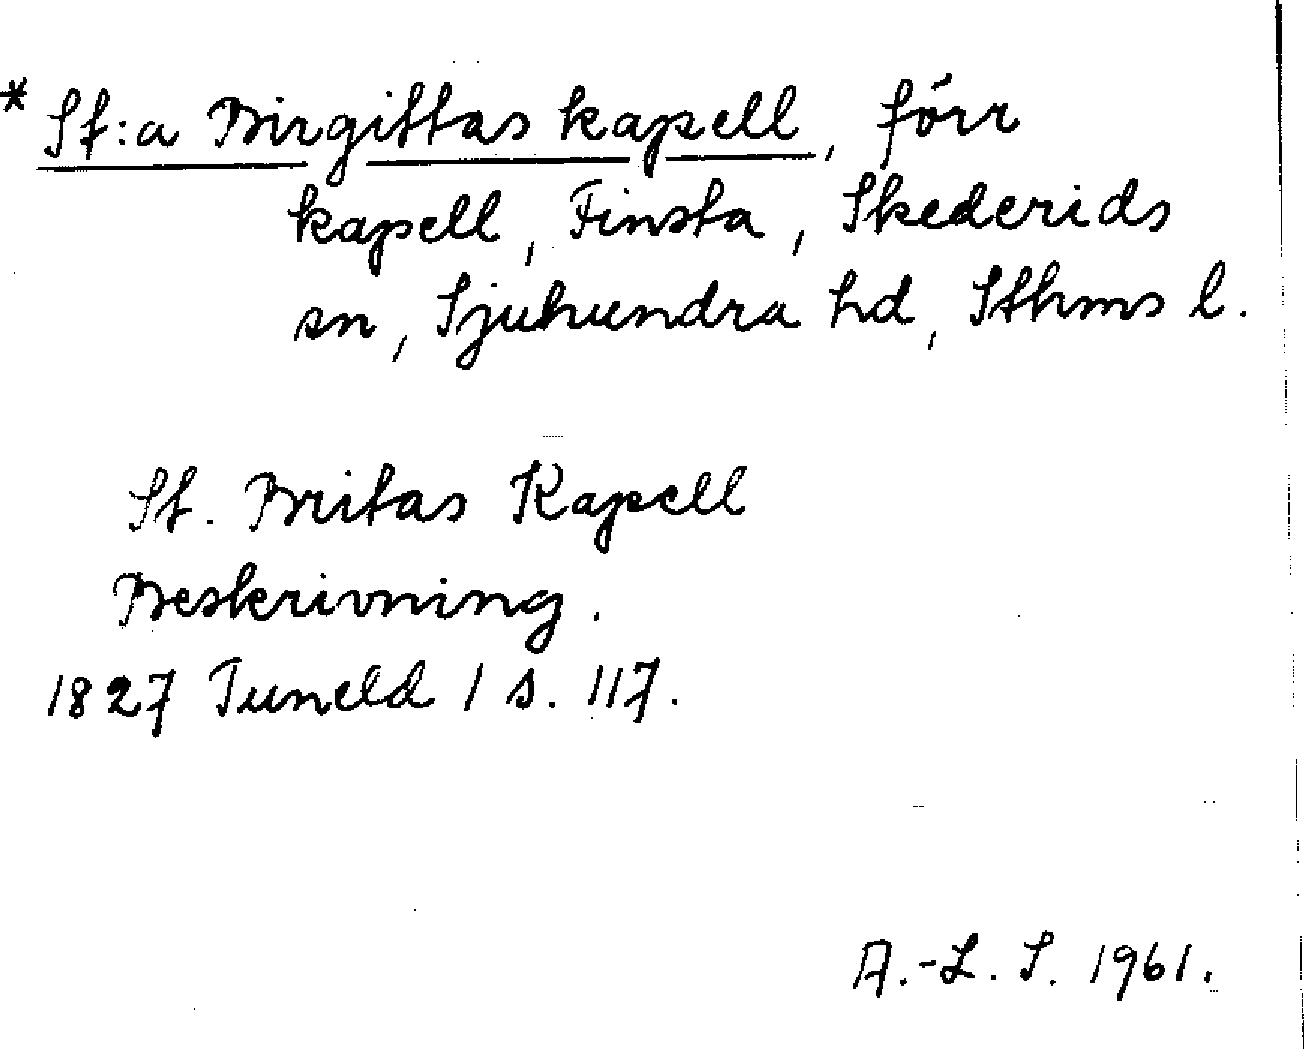 * St:a Birgittas kapell, förr
kapell, Finsta, Skederids
sn, Sjuhundra hd, Sthms l.
St. Britas Kapell
Beskrivning.
1827 Tuneld 1 s. 117.
A.-L. S. 1961.